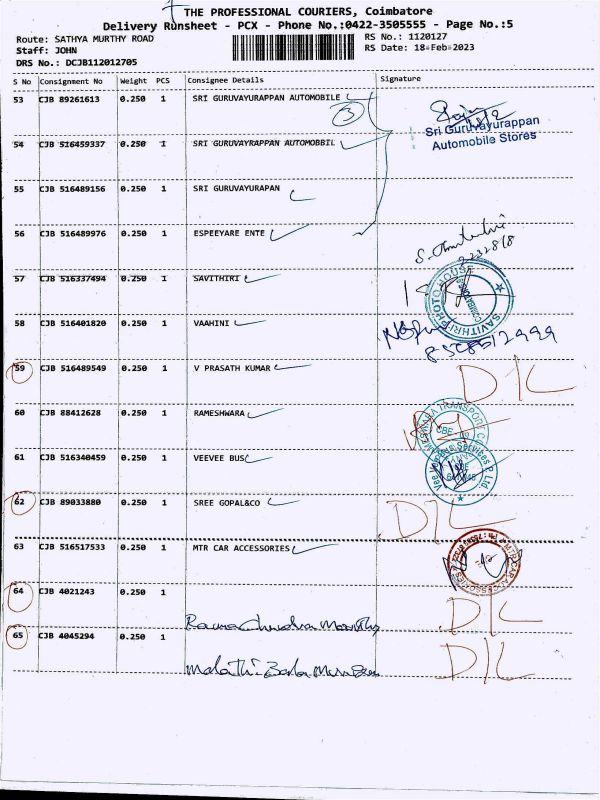 THE PROFESSIONAL COURIERS, Coimbatore
Delivery Runsheet - PCX - Phone No.:0422-3505555 - Page No.:5
Route: SATHYA MURTHY ROAD RS No.: 1120127
Staff: JOHN RS Date: 18-Feb-2023
DRS No.: DCJB112012705
S No Consignment No Weight PCS Consignee Details Signature
53 CJB 89261613 0.250 1 SRI GURUVAYURAPPAN AUTOMOBILE
3
Sri Guruvayurappan
Automobile Stores
54 CJB 516459337 0.250 1 SRI GURUVAYRAPPAN AUTOMOBBIL
55 CJB 516489156 0.250 1 SRI GURUVAYURAPAN
56 CJB 516489976 0.250 1 ESPEEYARE ENTE
57 CJB 516337494 0.250 1 SAVITHIRI
SAVITHRI PHOTO HOUSE
58 CJB 516401820 0.250 1 VAAHINI
8508512999
59 CJB 516489549 0.250 1 V PRASATH KUMAR D/L
60 CJB 88412628 0.250 1 RAMESHWARA
61 CJB 516340459 0.250 1 VEEVEE BUS
62 CJB 89033880 0.250 1 SREE GOPAL&CO D/L
63 CJB 516517533 0.250 1 MTR CAR ACCESSORIES
MTR CAR ACCESSORIES
64 CJB 4021243 0.250 1 D/L
Rama Chandra Moorthy
65 CJB 4045294 0.250 1 D/L
Malathi Bala